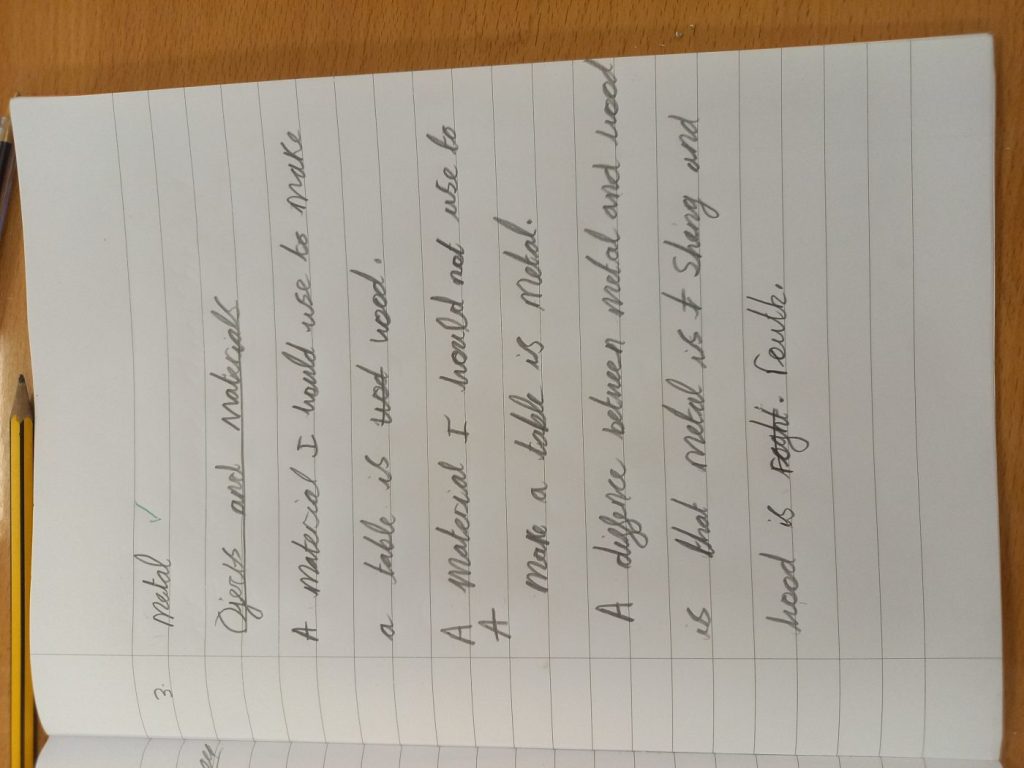 3. Metal ✓
Ojects and materials
A material I would use to make
a table is wood.
A material I would not use to
A
make a table is metal.
A differne between metal and wood
is that metal is Shing and
wood is roght. Routh.